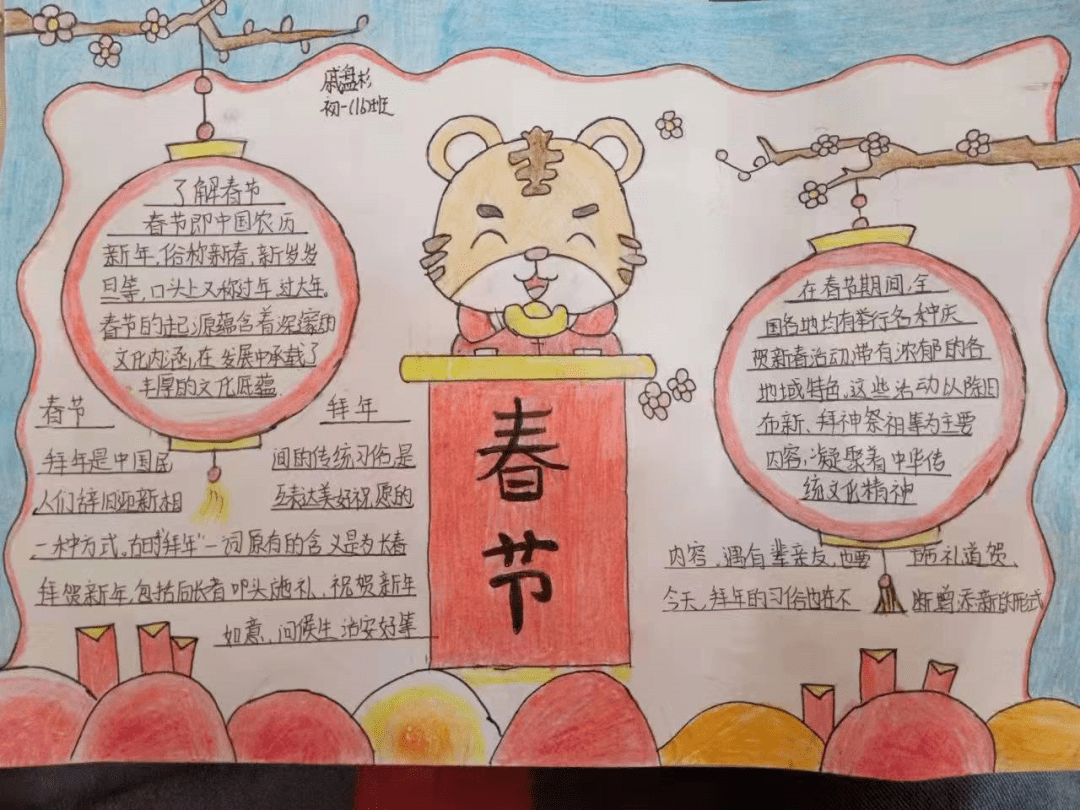 戚盘杉
初一(16)班
了解春节
春节即中国农历
新年,俗称新春、新岁、岁
日等,口头上又称过年、过大年。
春节的起源蕴含着深邃的
文化内涵,在发展中承载了
丰厚的文化底蕴.
春节 拜年
拜年是中国民 间的传统习俗,是
人们辞旧迎新相 互表达美好祝愿的
一种方式。古时"拜年"一词原有的含义是为长者
拜贺新年,包括向长者叩头施礼、祝贺新年
如意、问候生活安好等
春节
在春节期间,全
国各地均有举行各种庆
贺新春活动,带有浓郁的各
地域特色。这些活动以除旧
布新、拜神祭祖等为主要
内容,凝聚着中华传
统文化精神
内容,遇有辈亲友,也要 施礼道贺,
今天,拜年的习俗也在不 断增添新的形式